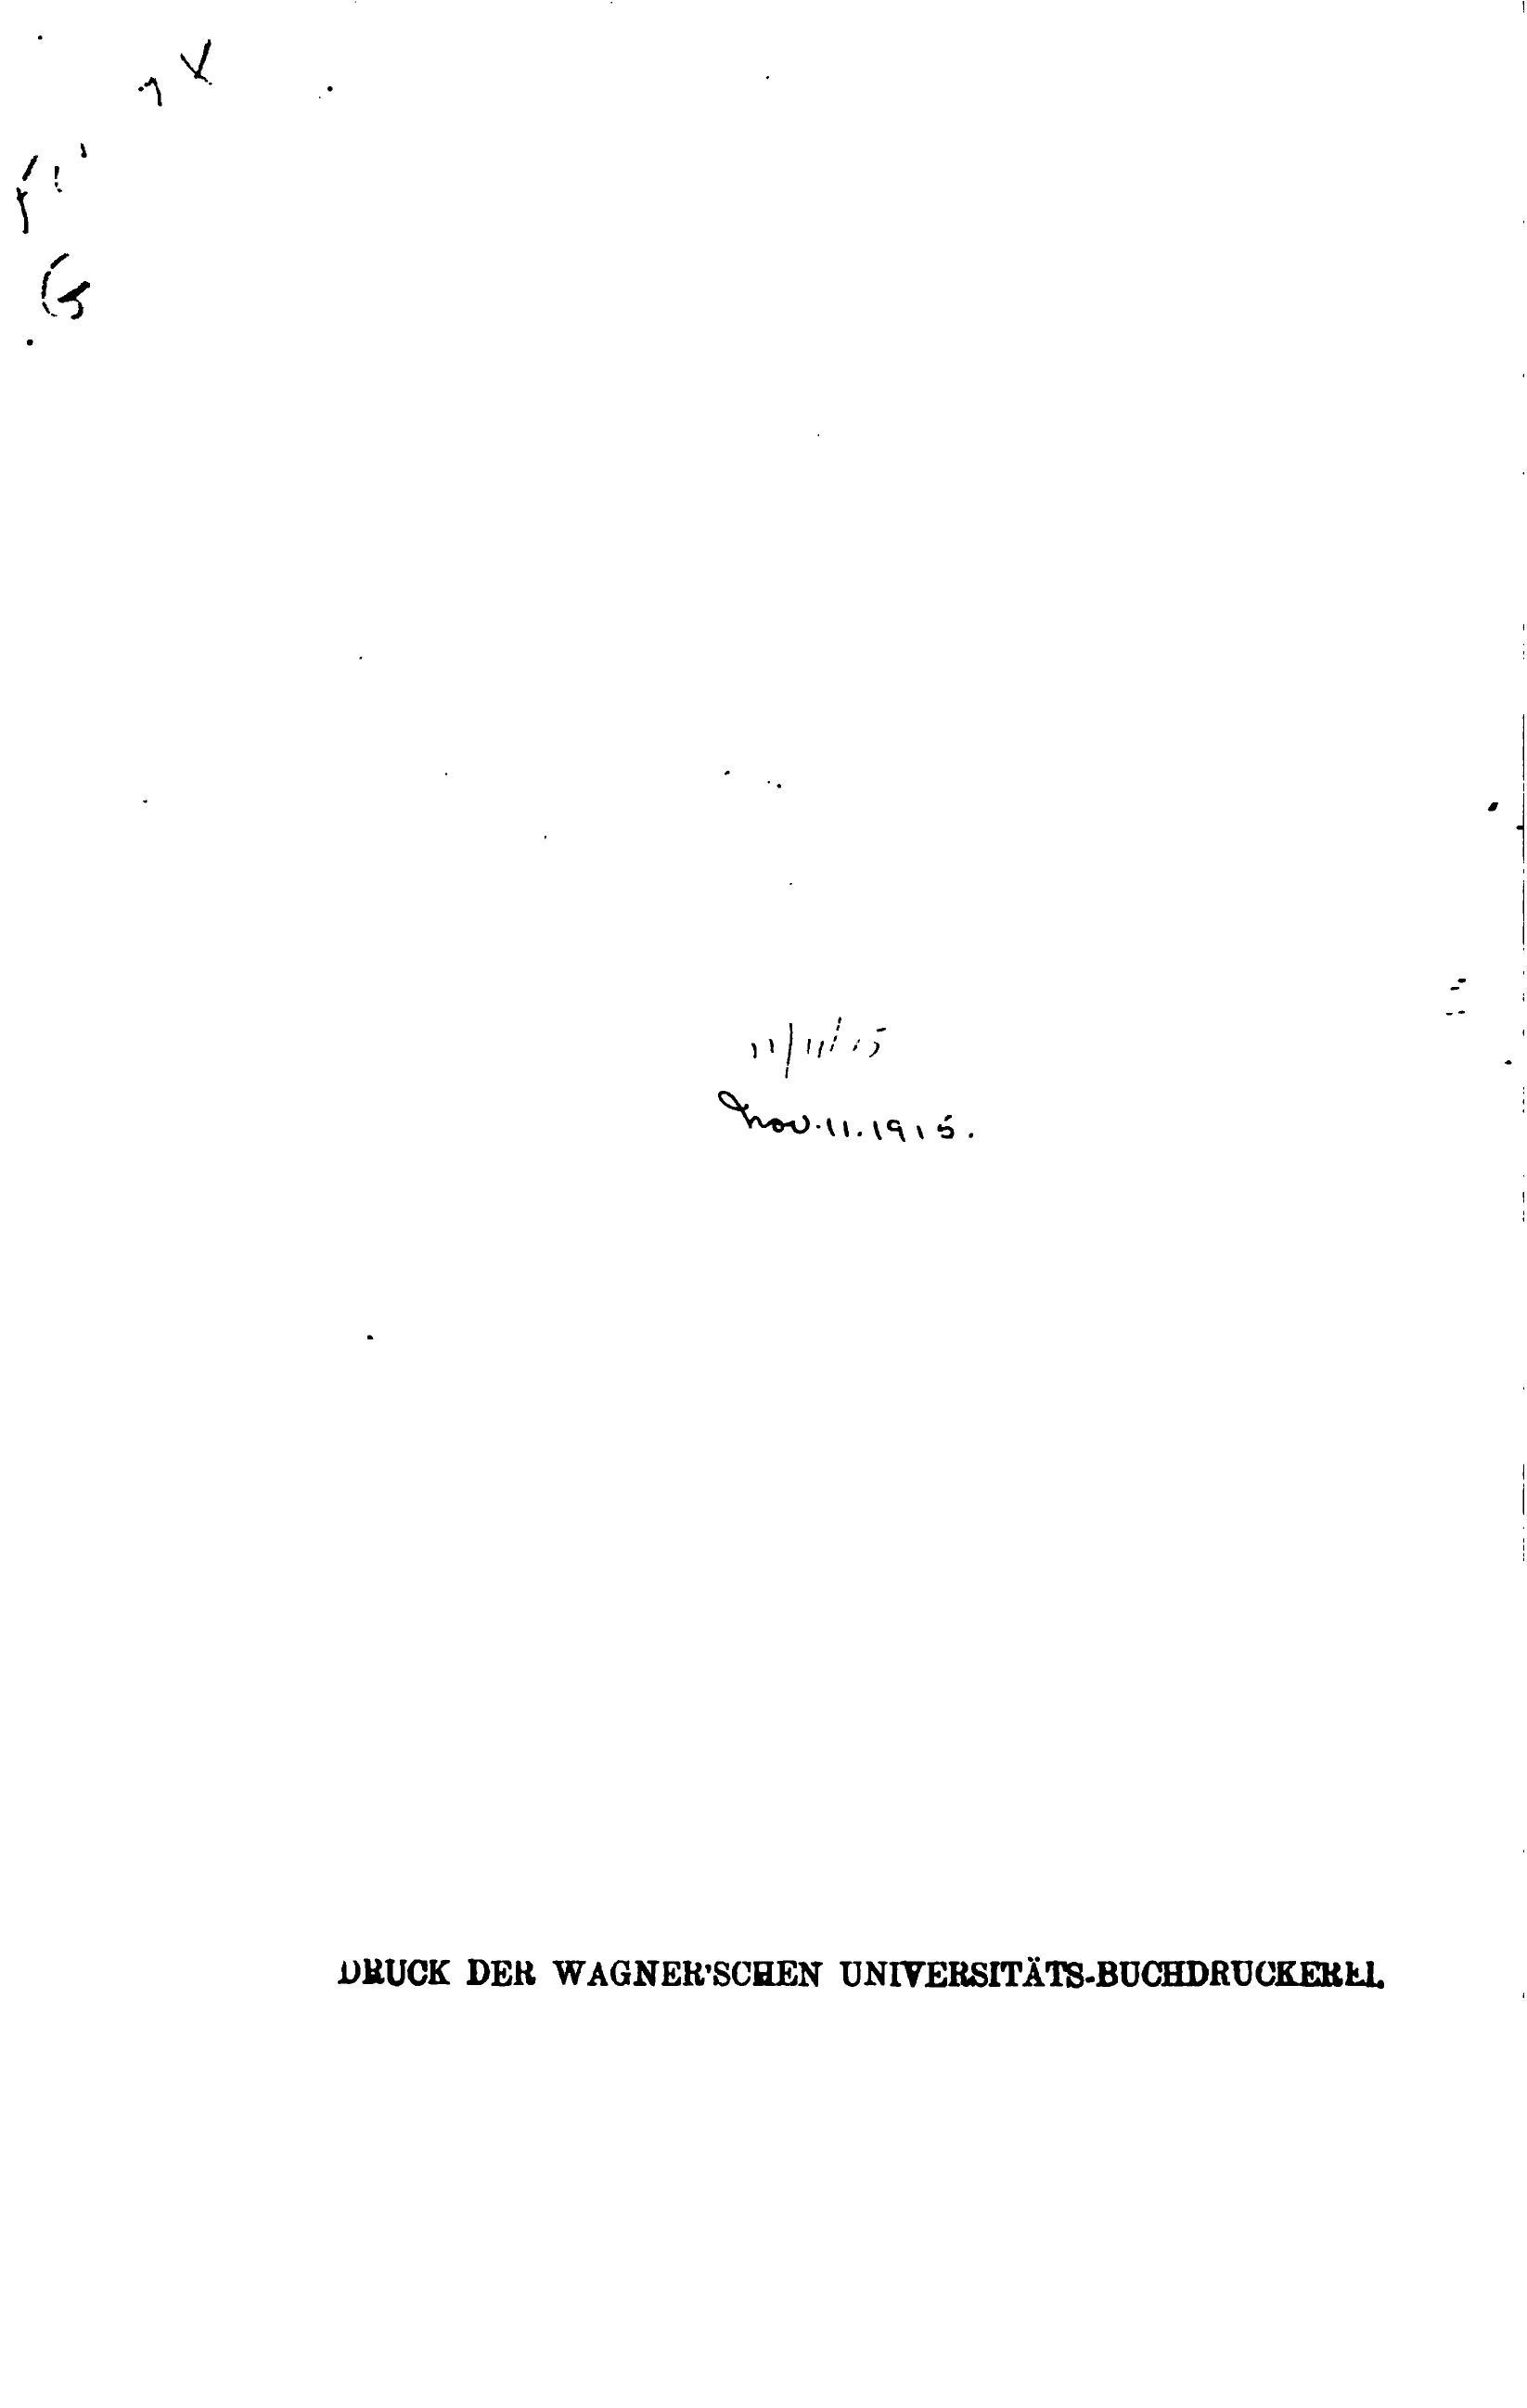 11/11/15
Nov. 11. 1915.
DRUCK DER WAGNER'SCHEN UNIVERSITÄTS-BUCHDRUCKEREI.